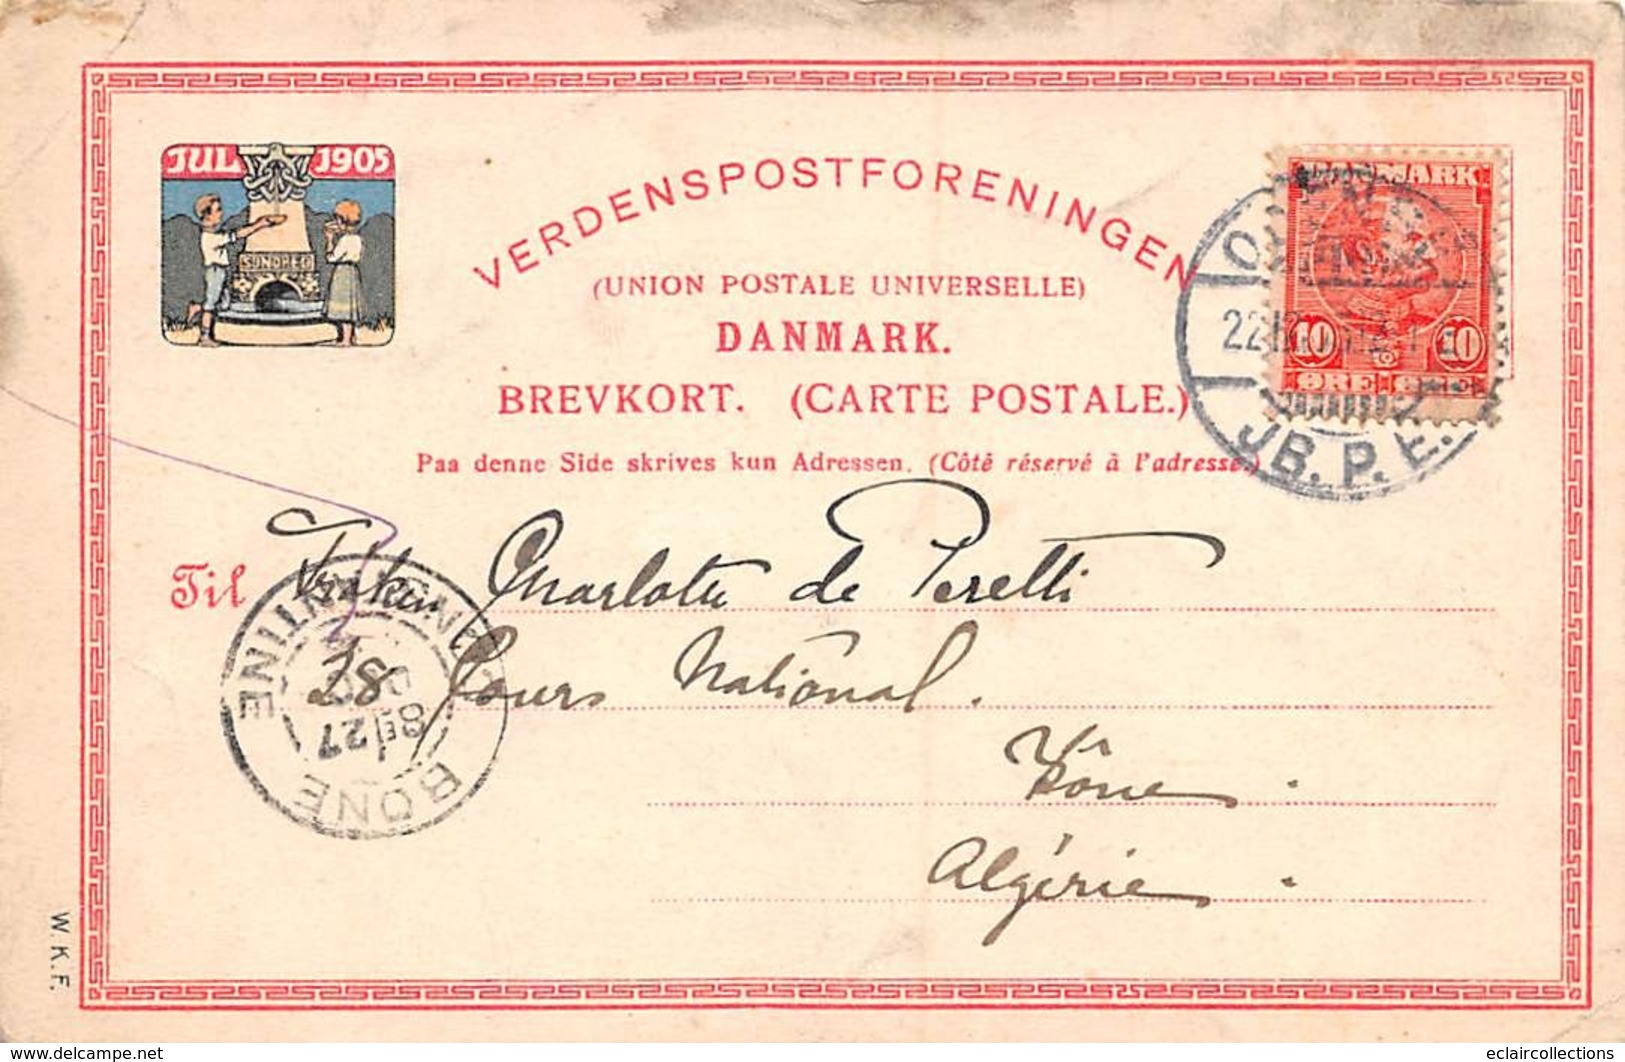 JUL 1905
SUNDHED
VERDENSPOSTFORENINGEN
(UNION POSTALE UNIVERSELLE)
DANMARK.
BREVKORT. (CARTE POSTALE.)
Paa denne Side skrives kun Adressen. (Côté réservé à l'adresse.)
DANMARK
10 10
ØRE
ODENSE
22
JB. P. E.
Til Frøken Charlotte de Peretti
28 Cours National.
Bône.
Algérie.
BONE
8E 27
W. K. F.
eclaircollections
www.delcampe.net